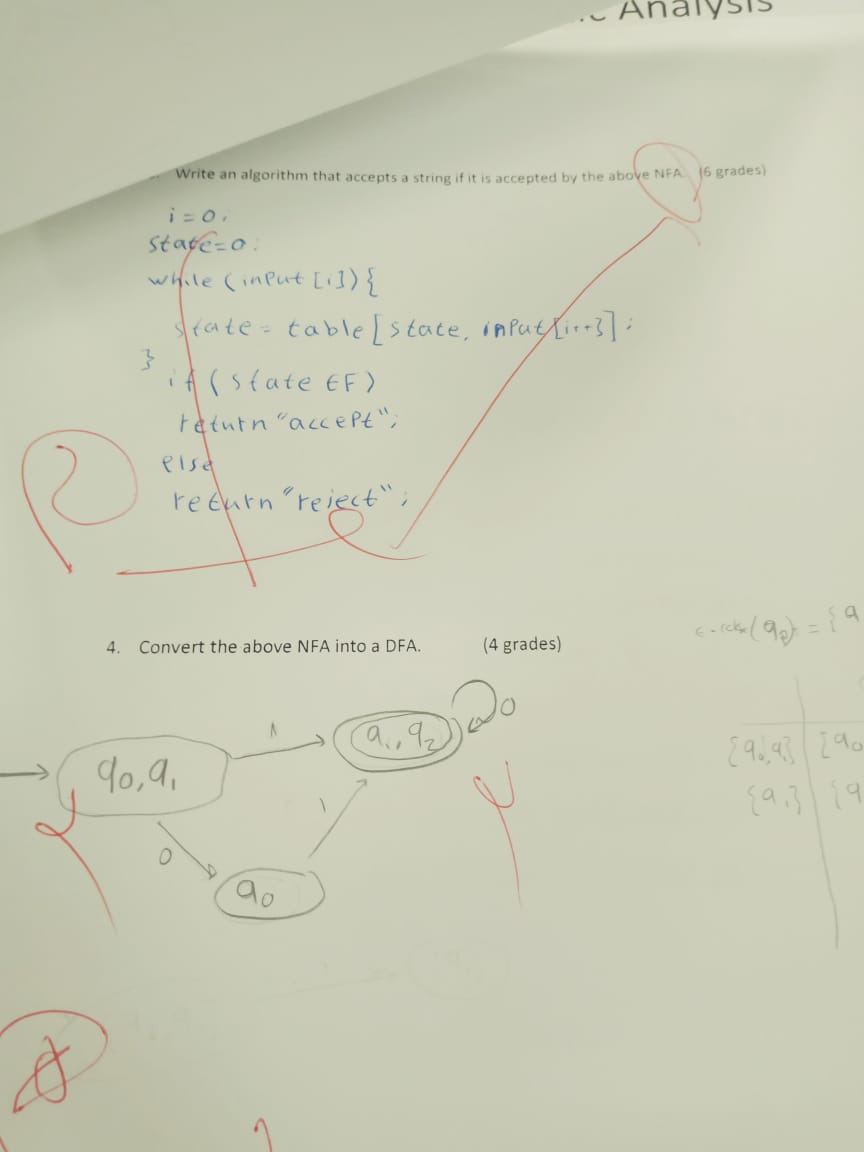 Analysis
Write an algorithm that accepts a string if it is accepted by the above NFA. (6 grades)
i = 0;
state=0;
while (input [i]) {
state = table [state, input [i++}];
}
if (state ∈F)
return "accept";
else
return "reject";
4. Convert the above NFA into a DFA. (4 grades)
= {q
q0, q1
1
q1, q2
0
0
1
q0
{q0,q1} {q0
{q1} {q